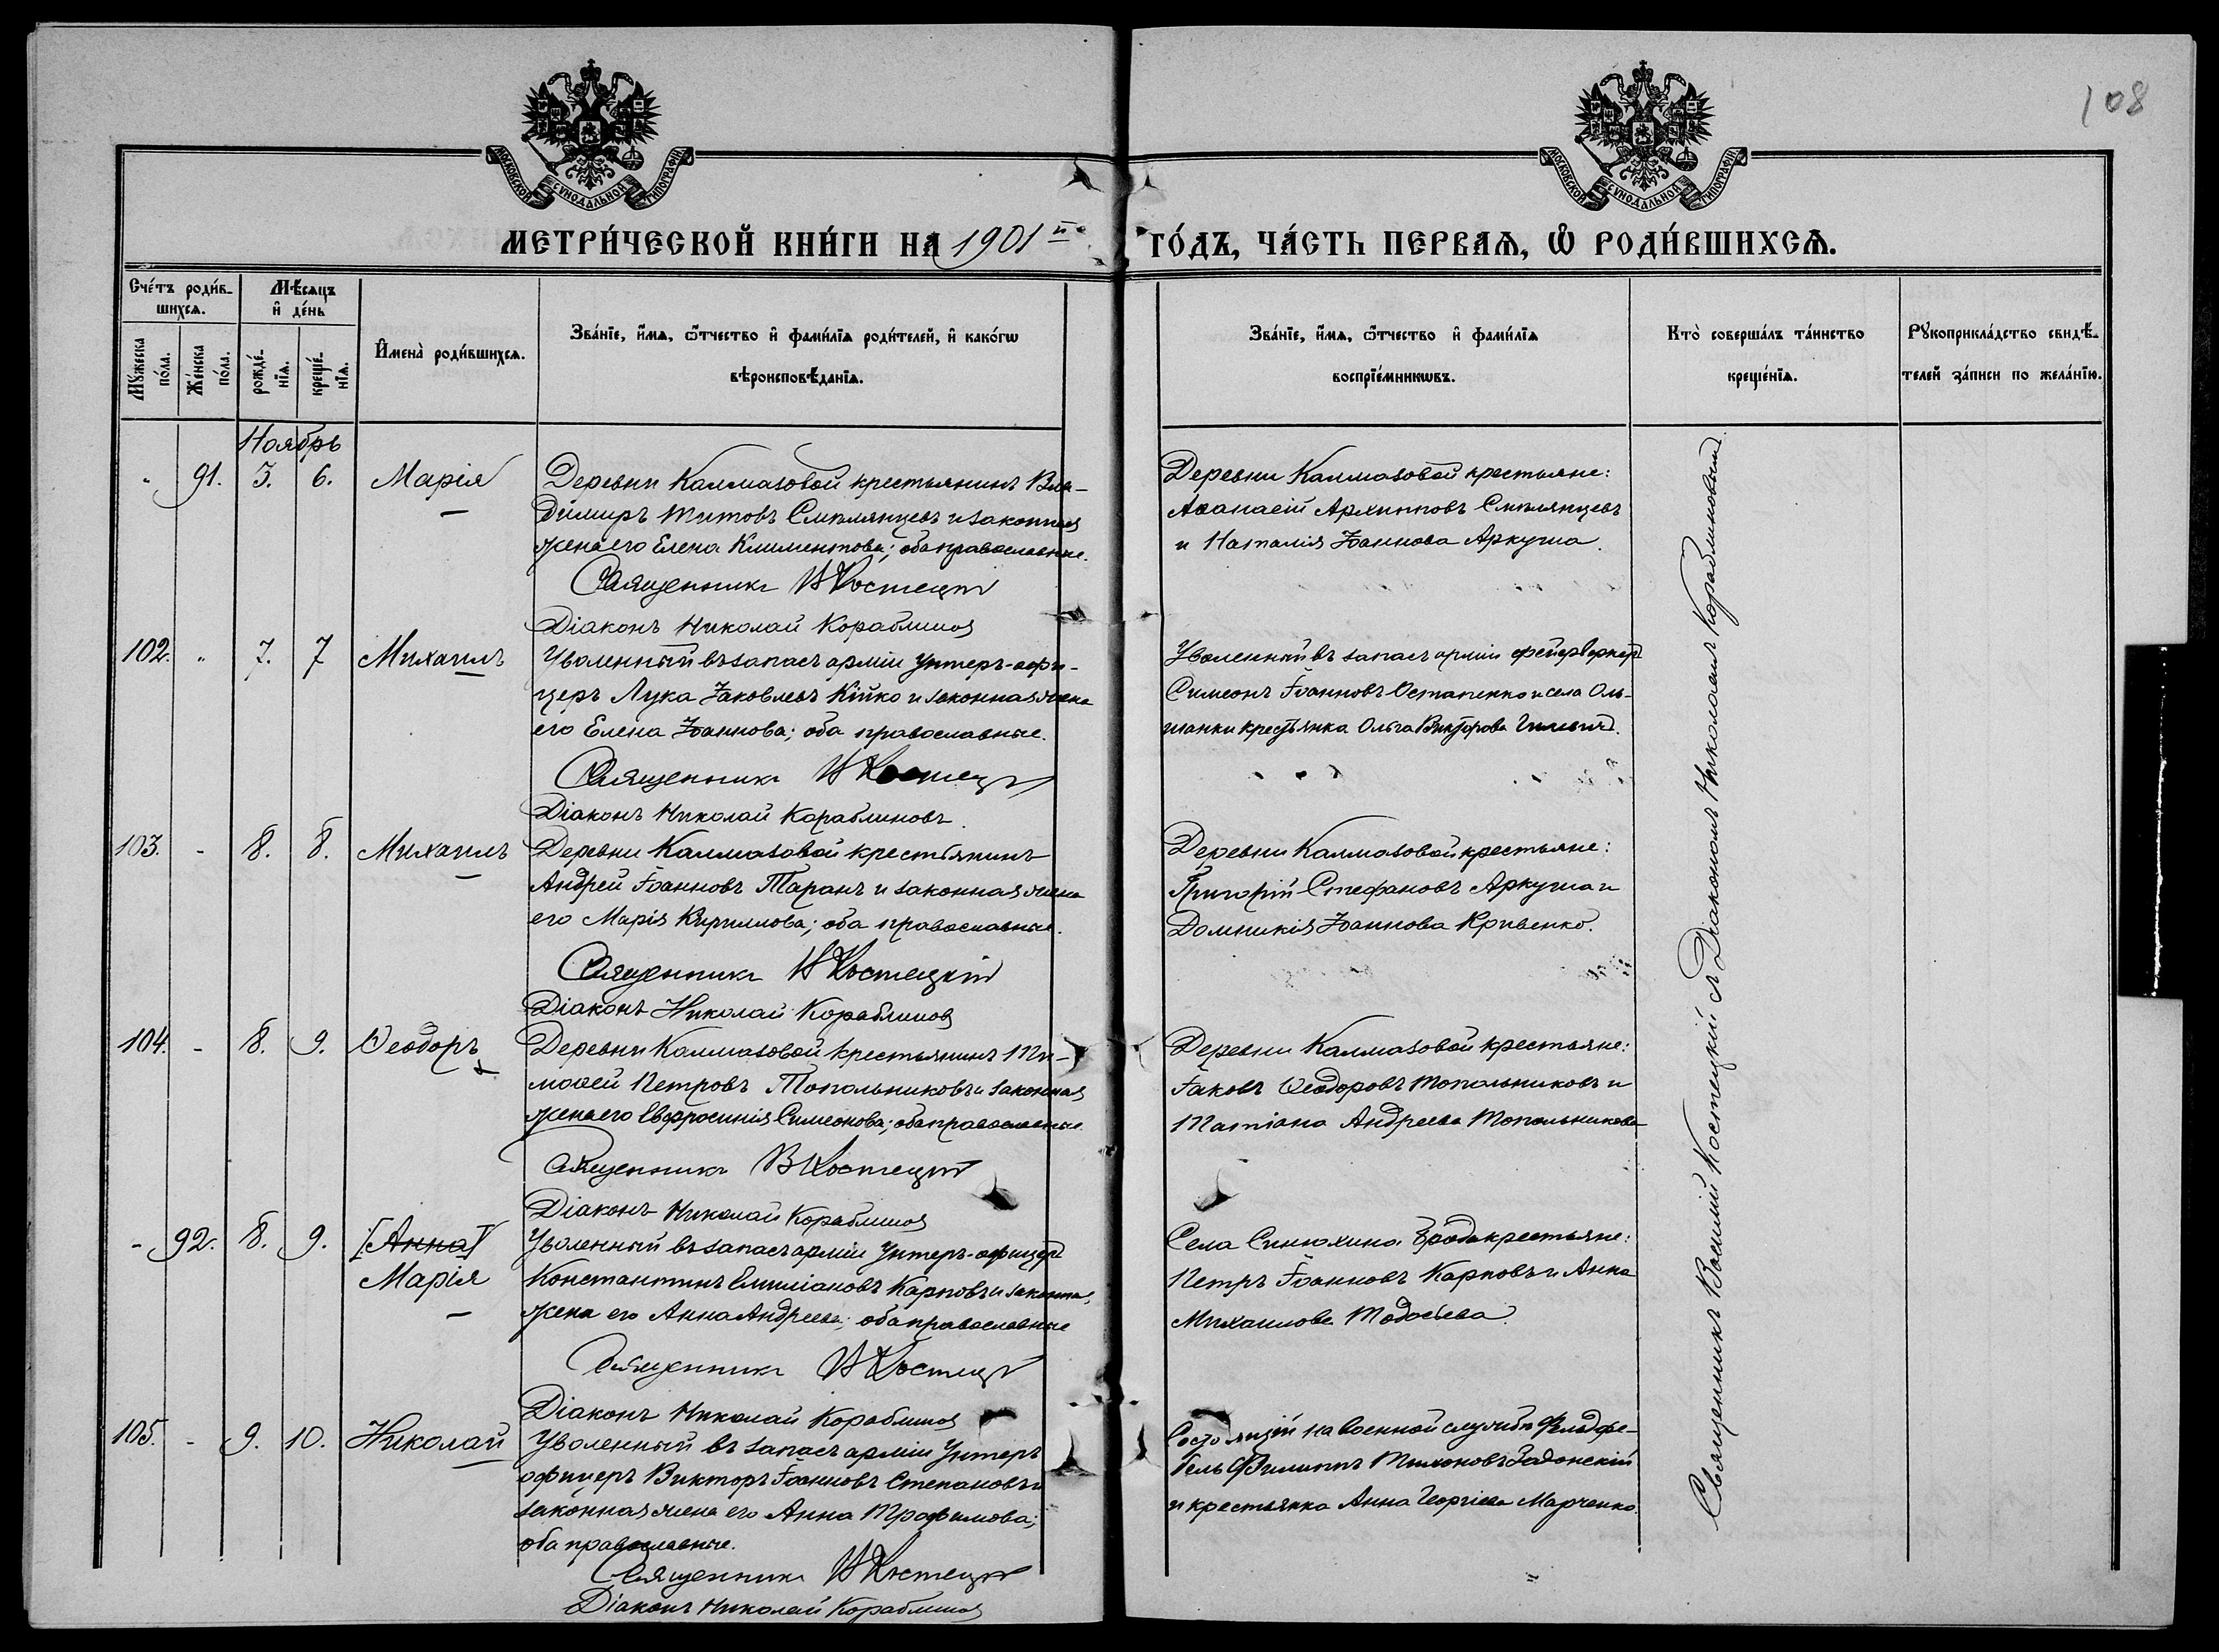 108
МОСКОВСКОЙ СѴНОДАЛЬНОЙ ТИПОГРАФІИ
МОСКОВСКОЙ СѴНОДАЛЬНОЙ ТИПОГРАФІИ
МЕТРИ́ЧЕСКОЙ КНИ́ГИ НА 1901й ГО́ДЪ, ЧА́СТЬ ПЕРВАѦ, Ѡ РОДИ́ВШИХСѦ.
Сче́тъ роди́в-
шихсѧ.
Мꙋ́жеска
по́ла.
Же́нска
по́ла.
Мѣ́сѧцъ
и҆ де́нь
рожде́-
нїѧ.
креще́-
нїѧ.
И҆мена̀ роди́вшихсѧ.
Зва́нїе, и҆́мѧ, ѻ҆́тчество и҆ фами́лїѧ роди́телей, и҆ како́гѡ
вѣроисповѣ́данїѧ.
Зва́нїе, и҆́мѧ, ѻ҆́тчество и҆ фами́лїѧ
воспрїе́мникѡвъ.
Кто̀ соверша́лъ та́инство
креще́нїѧ.
Рꙋкоприкла́дство свидѣ́-
телей за́писи по жела́нїю.
Ноябрь
91. 3. 6. Марія
Деревни Калмазовой крестьянинъ Вла-
димиръ Титовъ Смилянцевъ и законная
жена его Елена Климентова; оба православные.
Священникъ В Костецкій
Діаконъ Николай Кораблиновъ
Деревни Калмазовой крестьяне:
Аѳанасій Архипповъ Смилянцевъ
и Наталія Іоаннова Аркуша.
102. " 7. 7 Михаилъ
Уволенный въ запасъ арміи унтеръ-офи-
церъ Лука Іаковлевъ Кійко и законная жена
его Елена Іоаннова; оба православные.
Священникъ В Костецкій
Діаконъ Николай Кораблиновъ.
Уволенный въ запасъ арміи фейерверкеръ
Симеонъ Іоанновъ Остапенко и села Оль-
шанки крестьянка Ольга Викторова
103. - 8. 8. Михаилъ
Деревни Калмазовой крестьянинъ
Андрей Іоанновъ Таранъ и законная жена
его Марія Кириллова; оба православные.
Священникъ В Костецкій
Діаконъ Николай Кораблиновъ
Деревни Калмазовой крестьяне:
Григорій Стефановъ Аркуша и
Домникія Іоаннова Кривенко.
104. - 8. 9. Ѳеодоръ
Деревни Калмазовой крестьянинъ Ти-
моѳей Петровъ Топольниковъ и законная
жена его Евфросинія Симеонова; оба православные.
Священникъ В Костецкій
Діаконъ Николай Кораблиновъ
Деревни Калмазовой крестьяне:
Іаковъ Ѳеодоровъ Топольниковъ и
Татіана Андреева Топольникова
- 92. 8. 9. [Анна]
Марія
Уволенный въ запасъ арміи Унтеръ-офицеръ
Константинъ Емиліановъ Карповъ и законная
жена его Анна Андреева; оба православные
Священникъ В Костецкій
Діаконъ Николай Кораблиновъ
Села Синюхина Брода крестьяне:
Петръ Іоанновъ Карповъ и Анна
Михаилова Тодосьева.
105. - 9. 10. Николай
Уволенный въ запасъ арміи Унтеръ
офицеръ Викторъ Іоанновъ Степановъ и
законная жена его Анна Трофимова;
оба православные.
Священникъ В Костецкій
Діаконъ Николай Кораблиновъ
Состоящій на военной службѣ Фельдфе-
бель Филиппъ Тихоновъ Задонскій
и крестьянка Анна Георгіева Марченко.
Священникъ Василій Костецкій съ Діакономъ Николаемъ Кораблиновымъ